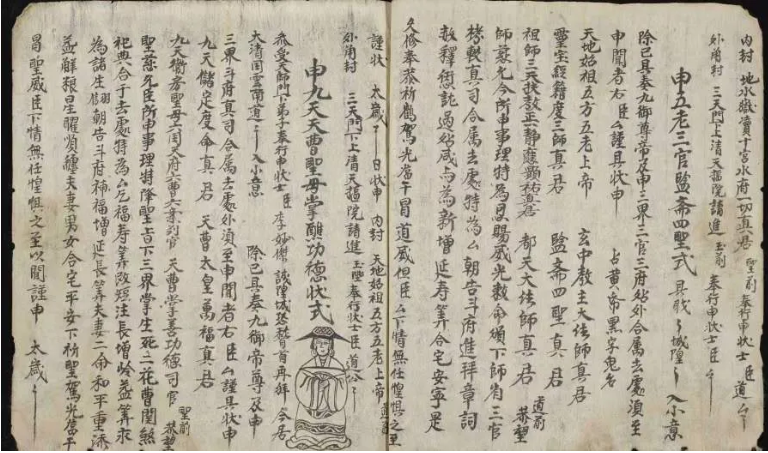 內封 地水嶽瀆十宮水府一切真君 聖前 奉行申狀士臣 道厶
外角村 三天門上清天樞院請進 玉前 奉行申狀士臣厶
申五老三官監斋四聖式 具戝〻城隍〻入小意
除已具奏九御尊帝及申三界三官三府外合属去處湏至
申聞者右臣厶謹具狀申 占黄帝黑字鬼者
天地始祖五方五老上帝 玄中教主大法師真君
靈宝經籍度三師真君 監斋四聖真君
祖師三天扶教正靜應顯祐真君 都天大法師真君 道前 恭望
師慈允今所申事理特為恩賜威光敷命頒下師省三官
将較真司合属去處特為厶朝告斗府進拜章詞
赦釋愆訛過咎咸与為新增延寿筭合宅安寧是
久修奉蔡祈鸞駕光當午冒道威但臣厶下情無任惶惧之至
謹狀 太歲〻日狀申 內封 天地始祖五方五老上帝 道前
外角村 三天門下上清天樞院請進 玉陛奉行狀士臣 首厶
申九天天曹聖母掌醮功德狀式
叅受天師門下弟子奉行申狀士臣 李妙 誠惶誠恐稽首再拜 今居
大清国雲南道〻入小意 除已具奏九御帝尊及申
三界斗府真司合属去處外湏至申聞者右臣厶謹具狀申
九天儲定度命真君 天曹太皇萬福真君
九天衛房聖母六同天府六曹六案判官 天曹掌善功德司官 聖前 恭望
聖慈允臣所申事理特降聖旨下三界掌生死二花曹関煞
祀典合于去處特為厶乞福寿筭改短注長增岭益筭求
為諸生朝告斗府祷福增延長筭夫妻二命和平重添
益觧禳星曜災缠夫妻男女合宅平安下祈聖駕光當午
冒聖威臣下情無任惶惧之至以聞謹申 太歲〻